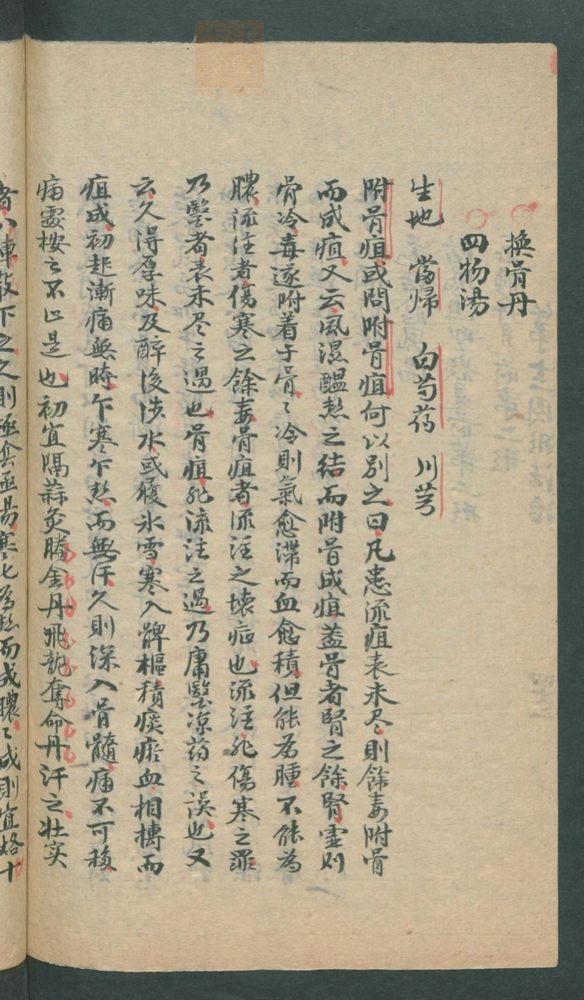 換骨丹
四物湯
生地 當歸 白芍药 川芎
附骨疽或問附骨疽何以别之曰凡患流疽表未尽則餘毒附骨
而成疽又云風濕醞熱之结而附骨成疽盖骨者腎之餘腎虚則
骨冷毒遂附着于骨〻冷則氣愈滞而血愈積但能為腫不能為
膿流注者傷寒之餘毒骨疽者流注之壊症也流注非傷寒之罪
乃醫者表未尽之過也骨疽非流注之過乃庸醫凉药之误也又
云久得厚味及醉後涉水或履氷雪寒入髀樞積痰瘀血相摶而
疽成初起漸痛無時乍寒乍熱而無汗久則深入骨髓痛不可移
痛處按之不止是也初宜隔蒜灸勝金丹飛龍奪命丹汗之壮实
者八陣散下之久則極陰極陽寒化為熱而成膿〻成則宜烙十